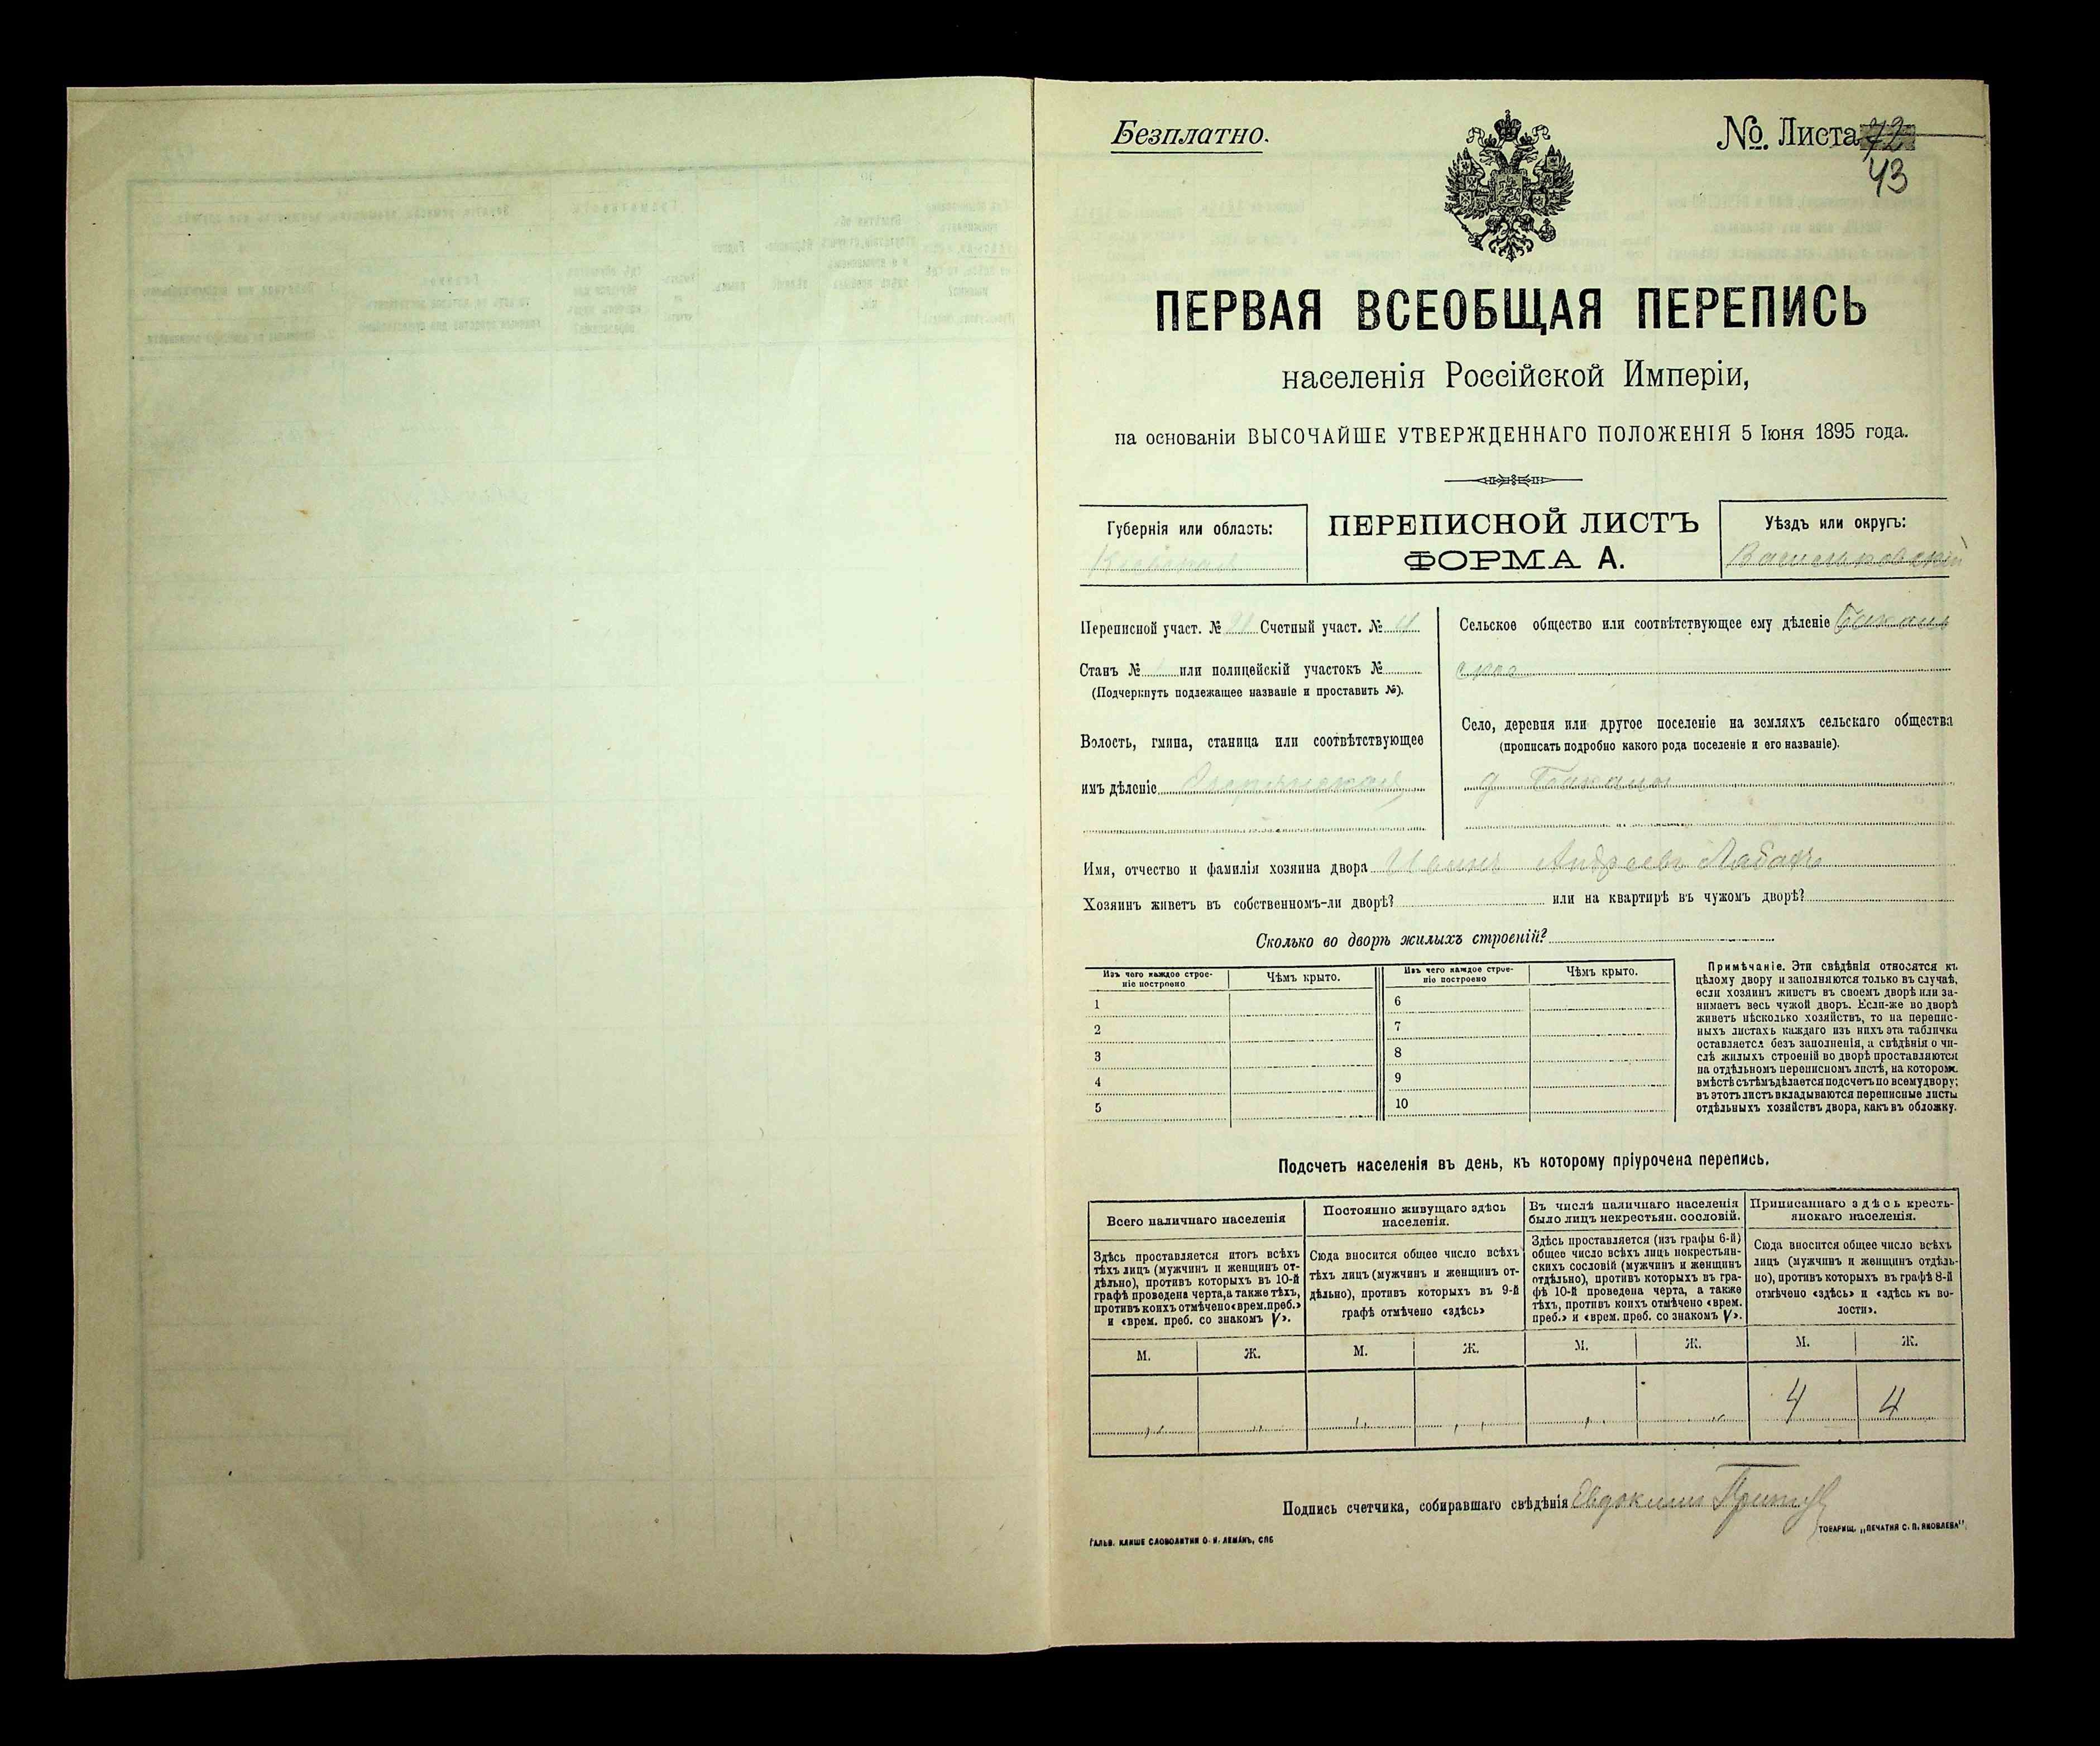 Безплатно.
№. Листа 42
43
ПЕРВАЯ ВСЕОБЩАЯ ПЕРЕПИСЬ
населенія Россійской Имперіи,
на основаніи ВЫСОЧАЙШЕ УТВЕРЖДЕННАГО ПОЛОЖЕНІЯ 5 Іюня 1895 года.
Губернія или область:
Кіевская
ПЕРЕПИСНОЙ ЛИСТЪ
ФОРМА А.
Уѣздъ или округъ:
Васильковскій
Переписной участ. № Счетный участ. №
Станъ № или полицейскій участокъ №
(Подчеркнуть подлежащее названіе и проставить №).
Волость, гмина, станица или соотвѣтствующее
имъ дѣленіе
Сельское общество или соотвѣтствующее ему дѣленіе
ское
Село, деревня или другое поселеніе на земляхъ сельскаго общества
(прописать подробно какого рода поселеніе и его названіе).
д
Имя, отчество и фамилія хозяина двора Иванъ Андреевъ
Хозяинъ живетъ въ собственномъ-ли дворѣ? или на квартирѣ въ чужомъ дворѣ?
Сколько во дворѣ жилыхъ строеній?
Изъ чего каждое строе-
ніе построено
Чѣмъ крыто.
Изъ чего каждое строе-
ніе построено
Чѣмъ крыто.
1 6
2 7
3 8
4 9
5 10
Примѣчаніе. Эти свѣдѣнія относятся къ
цѣлому двору и заполняются только въ случаѣ,
если хозяинъ живетъ въ своемъ дворѣ или за-
нимаетъ весь чужой дворъ. Если-же во дворѣ
живетъ нѣсколько хозяйствъ, то на перепис-
ныхъ листахъ каждаго изъ нихъ эта табличка
оставляется безъ заполненія, а свѣдѣнія о чи-
слѣ жилыхъ строеній во дворѣ проставляются
на отдѣльномъ переписномъ листѣ, на которомъ
вмѣстѣ съ тѣмъ дѣлается подсчетъ по всему двору;
въ этотъ листъ вкладываются переписные листы
отдѣльныхъ хозяйствъ двора, какъ въ обложку.
Подсчетъ населенія въ день, къ которому пріурочена перепись.
Всего наличнаго населенія
Здѣсь проставляется итогъ всѣхъ
тѣхъ лицъ (мужчинъ и женщинъ от-
дѣльно), противъ которыхъ въ 10-й
графѣ проведена черта, а также тѣхъ,
противъ коихъ отмѣчено «врем. преб.»
и «врем. преб. со знакомъ V».
Постоянно живущаго здѣсь
населенія.
Сюда вносится общее число всѣхъ
тѣхъ лицъ (мужчинъ и женщинъ от-
дѣльно), противъ которыхъ въ 9-й
графѣ отмѣчено «здѣсь»
Въ числѣ наличнаго населенія
было лицъ некрестьян. сословій.
Здѣсь проставляется (изъ графы 6-й)
общее число всѣхъ лицъ некрестьян-
скихъ сословій (мужчинъ и женщинъ
отдѣльно), противъ которыхъ въ гра-
фѣ 10-й проведена черта, а также
тѣхъ, противъ коихъ отмѣчено «врем.
преб.» и «врем. преб. со знакомъ V».
Приписаннаго здѣсь кресть-
янскаго населенія.
Сюда вносится общее число всѣхъ
лицъ (мужчинъ и женщинъ отдѣль-
но), противъ которыхъ въ графѣ 8-й
отмѣчено «здѣсь» и «здѣсь къ во-
лости».
М. Ж. М. Ж. М. Ж. М. Ж.
4 4
Подпись счетчика, собиравшаго свѣдѣнія Евдокимъ
ГАЛЬВ. КЛИШЕ СЛОВОЛИТНИ О. И. ЛЕМАНЪ, СПБ
ТОВАРИЩ. „ПЕЧАТНЯ С. П. ЯКОВЛЕВА"